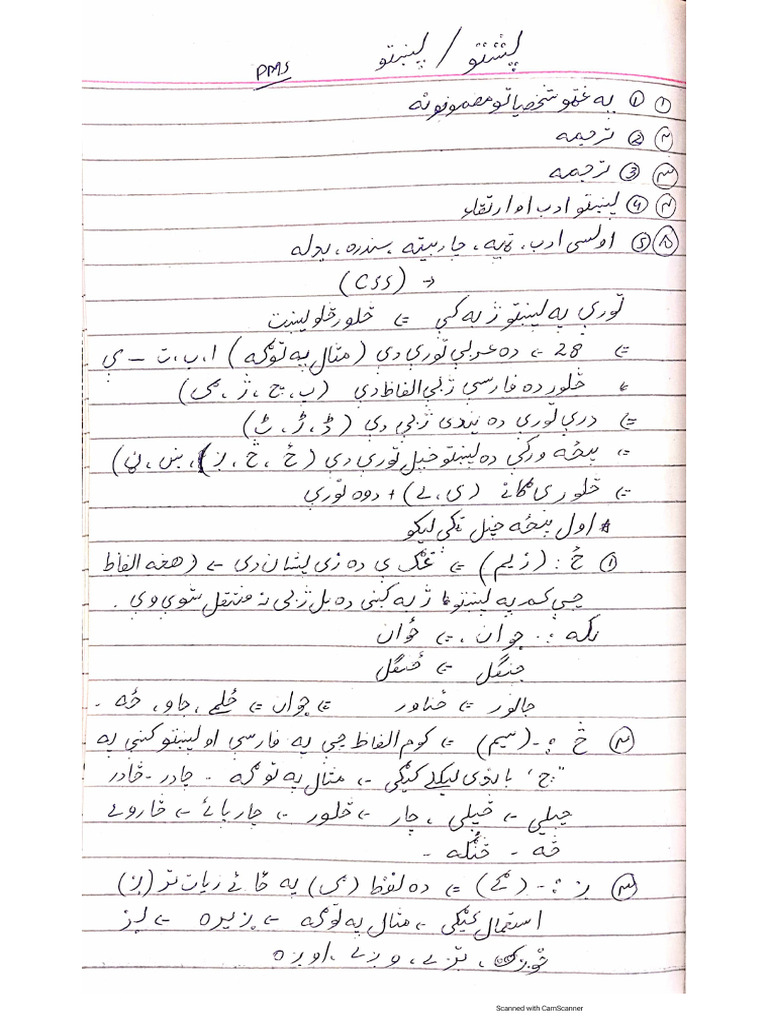 پشتو / پښتو PMS
۱ ① په غټو شخصیاتو مضمونونه
۲ ② ترجمه
۳ ③ ترجمه
۴ ④ پښتو ادب او ارتقاء
۵ ⑤ اولسی ادب، ټپه، چاربیته، سندره، بدله
→ (CSS)
توري په پښتو ژبه کې = څلور څلویښت
= 28 - ده عربي توري دي (مثال په توګه) ا، ب، ت – ي
، څلور ده فارسی ژبې الفاظ دي (پ، چ، ژ، ګ)
= درې توري ده هندی ژبې دي (ډ، ړ، ټ)
= پنځه ورکي ده پښتو خپل توري دي (ځ، څ، ږ، ښ، ڼ)
= څلور ی ګانے (ی، ے) + دوه توري
* اول پنځه خپل ټکي لیکو
① ځ : (زیم) = غږ ی ده زی پشان دی = (هغه الفاظ
چې کم په پښتو ژبه کښې ده بل ژبې نه منتقل شوي وي .
لکه :- جوان ، = ځوان
جنګل = ځنګل
جانور = ځناور = جوان = ځلمے ، جاو ، ځه -
۲ څ :- (سیم) = کوم الفاظ چې په فارسي او پښتو کښې په
"چ" باندی لیکلے کیګی - مثال په توګه - چادر - څادر
چپلي - څپلي ، چار - څلور - چارپائے - څاروے
څه - څنګه -
۳ ږ :- (ګے) = ده لفظ (ګ) په ځائے زیات تر (ږ)
استمال کیګی - مثال په توګه - ږیره - لږ
، وږے ، اوږه